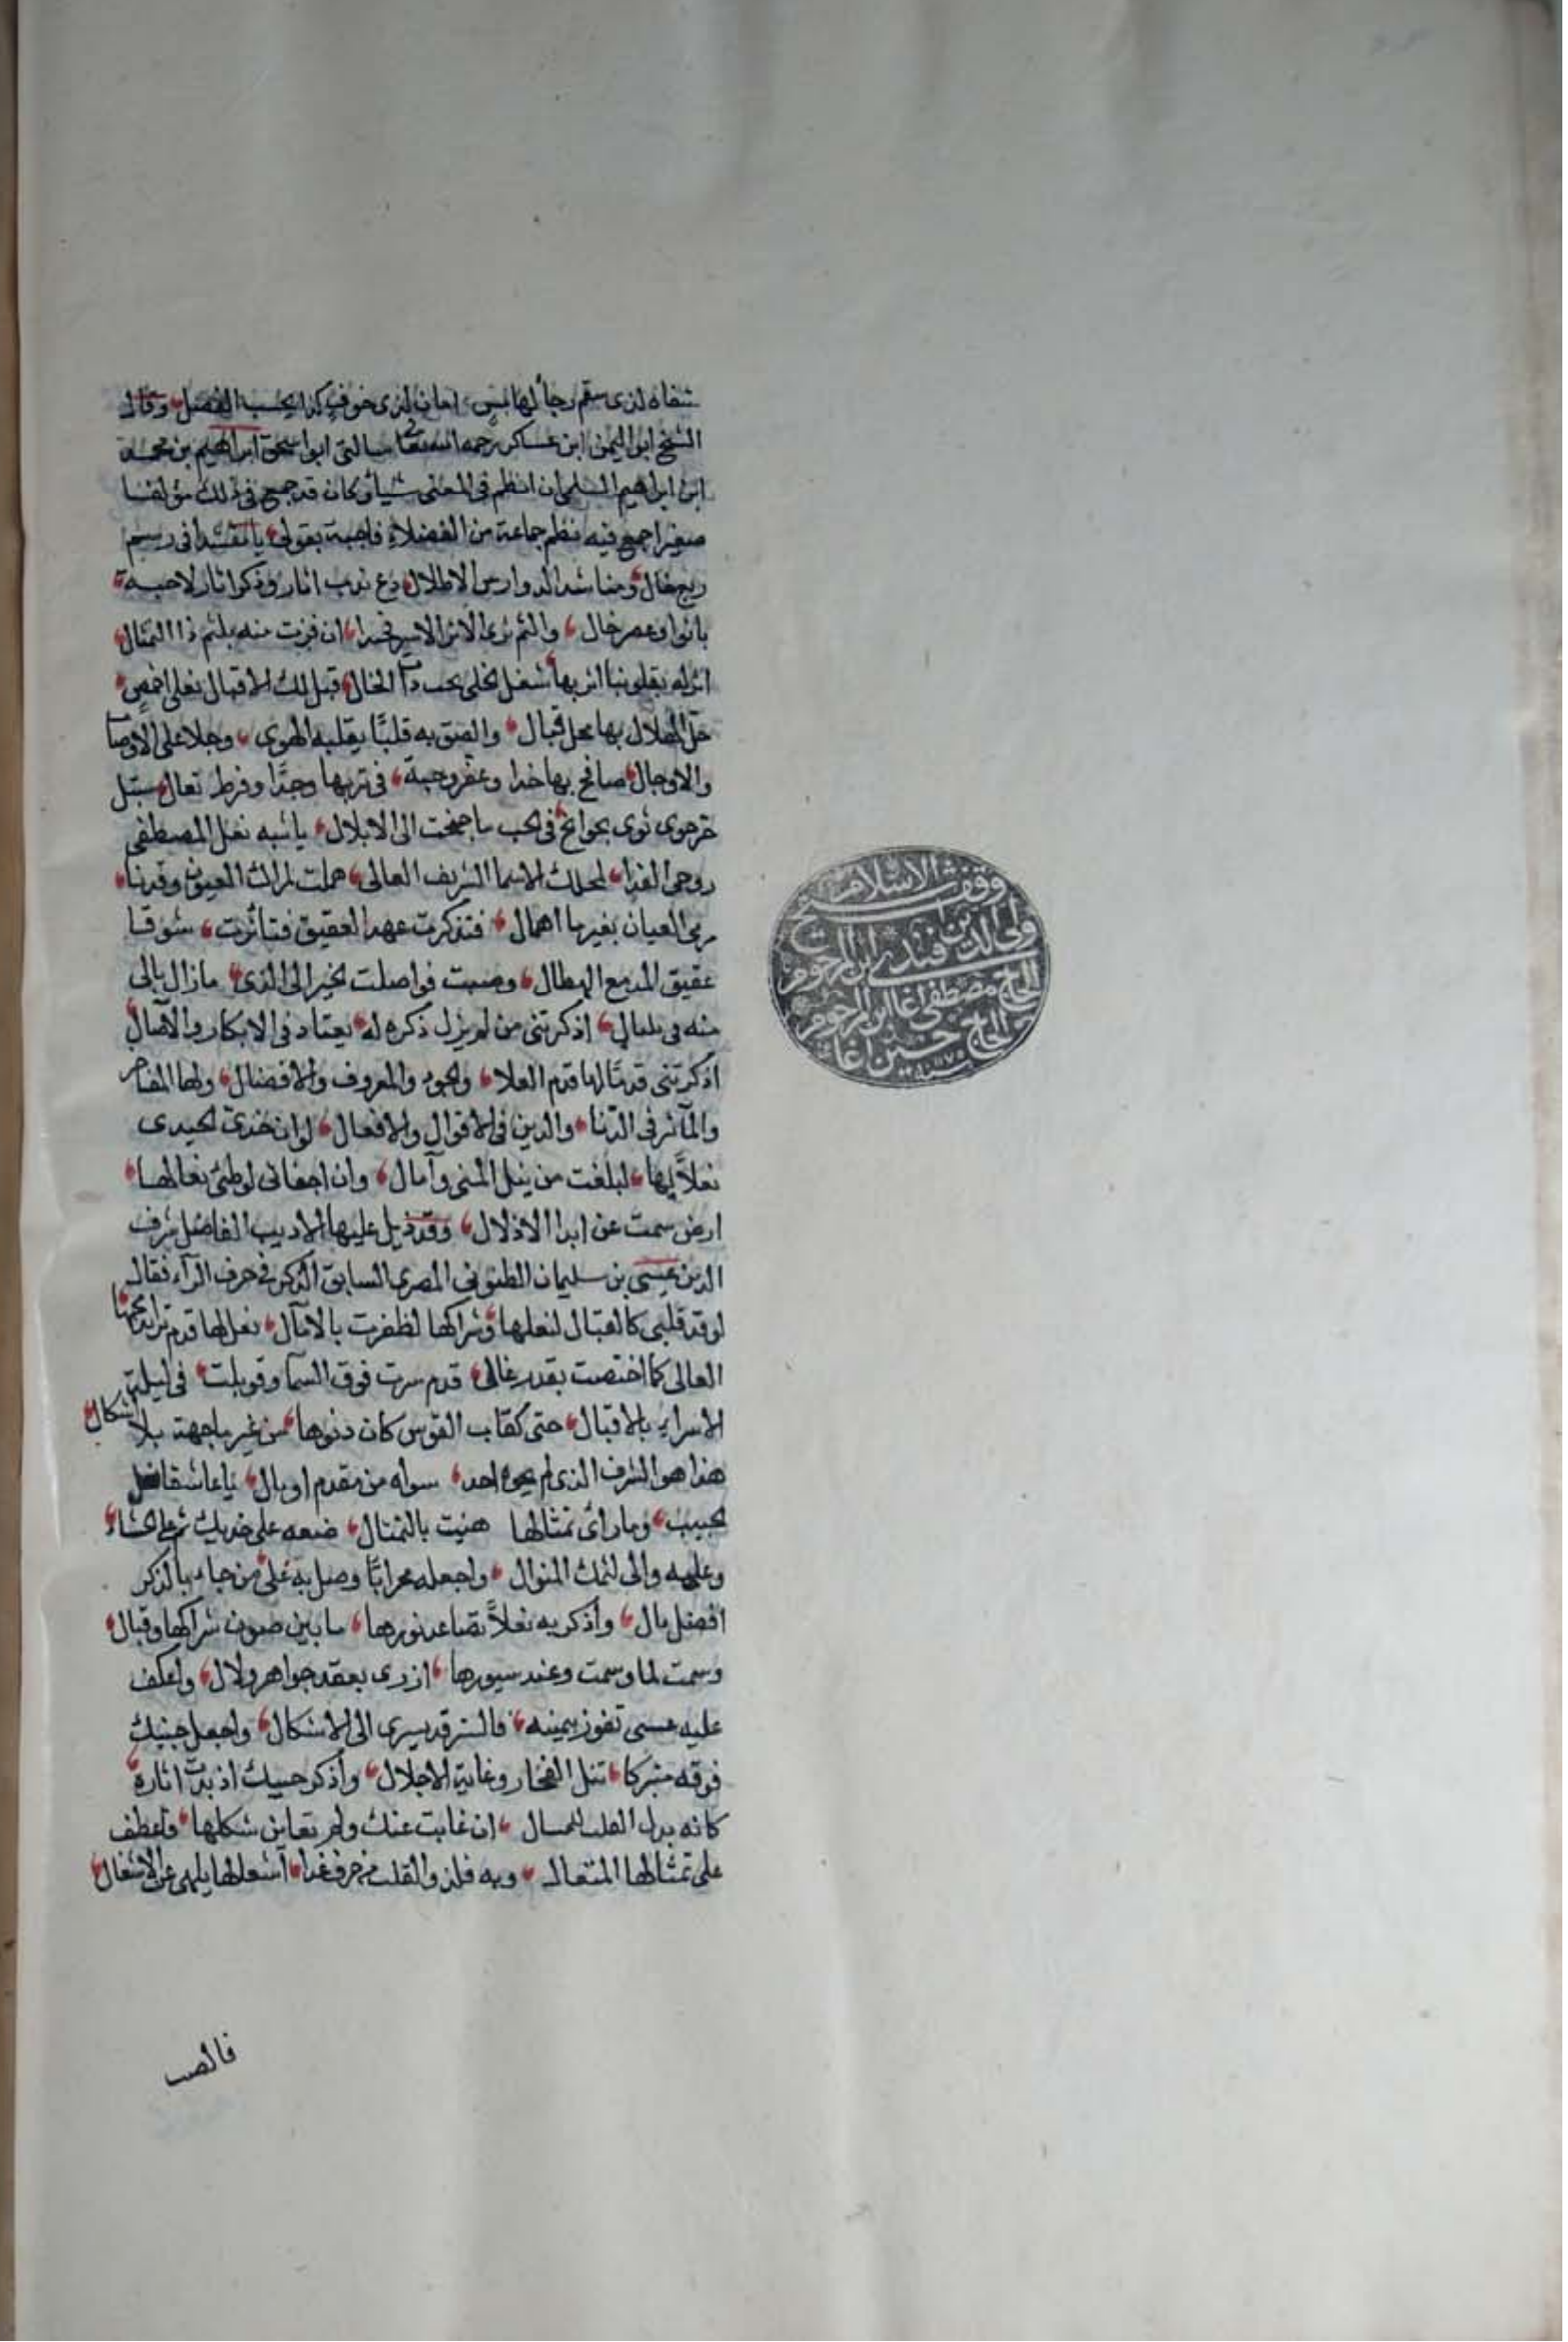 شفاء لذى سقم رجأ لبائس امان لذى خوف كذا يحسب الفضل وقال
الشيخ ابو اليمن ابن عساكر رحمه الله تعالى سالنى ابو اسحق ابراهيم بن محمد
ابن ابراهيم السلمى ان انظم فى المعنى شيأ وكان قد جمع فى ذلك مؤلفا
صغيرا جمع فيه نظم جماعة من الفضلاء فاجبته بقولى يا منشدا فى رسم
ربع خال ومناشد الدوارس الاطلال دع ندب اثار وذكر اثار لاحبة
بانوا وعصر خال والثم ثرى الاثر الاثير فحبذا ان فزت منه بلثم ذا التمثال
اثر له بقلوبنا اثر بها شغل الخلى بحب ذات الخال قبل لك الاقبال نعلى اخمص
حل الهلال بها محل قبال والصق به قلبًا يقلبه الهوى وجلا على الاوصاب
والاوجال صافح بها خدا وعفر وجنة فى تربها وجدًا وفرط تغال سيبل
حر جوى ثوى بجوانح فى الحب ما جنحت الى الابلال يا شبه نعل المصطفى
روحى الفدا لمحلك الاسما الشريف العالى هملت لمراك العيون وقد نا
مرمى العيان بغير ما اهمال فتذكرت عهد العقيق فتاثرت شوقا
عقيق المدمع الهطال وصبت فواصلت الحنين الى الذى ما زال بالى
منه فى بلبال اذكرتنى من لم يزل ذكرى له يعتاد فى الابكار والآصال
اذكرتنى قدمًا لها قدم العلا والجود والمعروف والافضال ولها المفاخر
والمآثر فى الدنا والدين فى الاقوال والافعال لو ان خدى يحتذى
نعلاً لها لبلغت من نيل المنى وآمال وان اجفانى لوطئ نعالها
ارض سمت عن ابدا الاذلال وقد ذيل عليها الاديب الفاضل شرف
الدين عيسى بن سليمان الطنوبى المصرى السابق الذكر فى حرف الرآء فقال
لو قد قلبى كالقبال لنعلها وشراكها لظفرت بالآمال نعل لها قدم ترابد مجدها
العالى كما اختصت بقدر غالى قدم سرت فوق السما وقوبلت فى ليلة
الاسراء بالاقبال حتى كقاب القوس كان دنوها من غير ما جهة بلا اشكال
هذا هو الشرف الذى لم يحوه احد سواه من مقدم او بال يا عاشقا نعل
الحبيب وما رأى تمثالها هنيت بالتمثال ضعه على خديك ثم على الحشاء
وعليه والى لثمك المنوال واجعله محرابًا وصل به على من جاء بالذكر
افضل بال وأذكر به نعلاً تصاعد نورها ما بين صون شراكها وقبال
وسمت لما وسمت وعند سيورها ازرى بعقد جواهر ولال واعكف
عليه عسى تفوز بيمينه فالسر قد يسرى الى الاشكال واجعل جبينك
فوقه متبركا تنل الفخار وغاية الاجلال وأذكر حبيبك اذ بدت اثاره
كانه بدل القلب للحسال ان غابت عنك ولم تعاين شكلها فاعطف
على تمثالها المتعال وبه فلذ والقلب من حرف غدا آشعالها يلهى عن الاشغال
فالصب
وقف شيخ الاسلام
ولى الدين افندى ابن المرحوم
الحاج مصطفى اغا ابن المرحوم
الحاج حسين اغا
سنة ١١٧٥